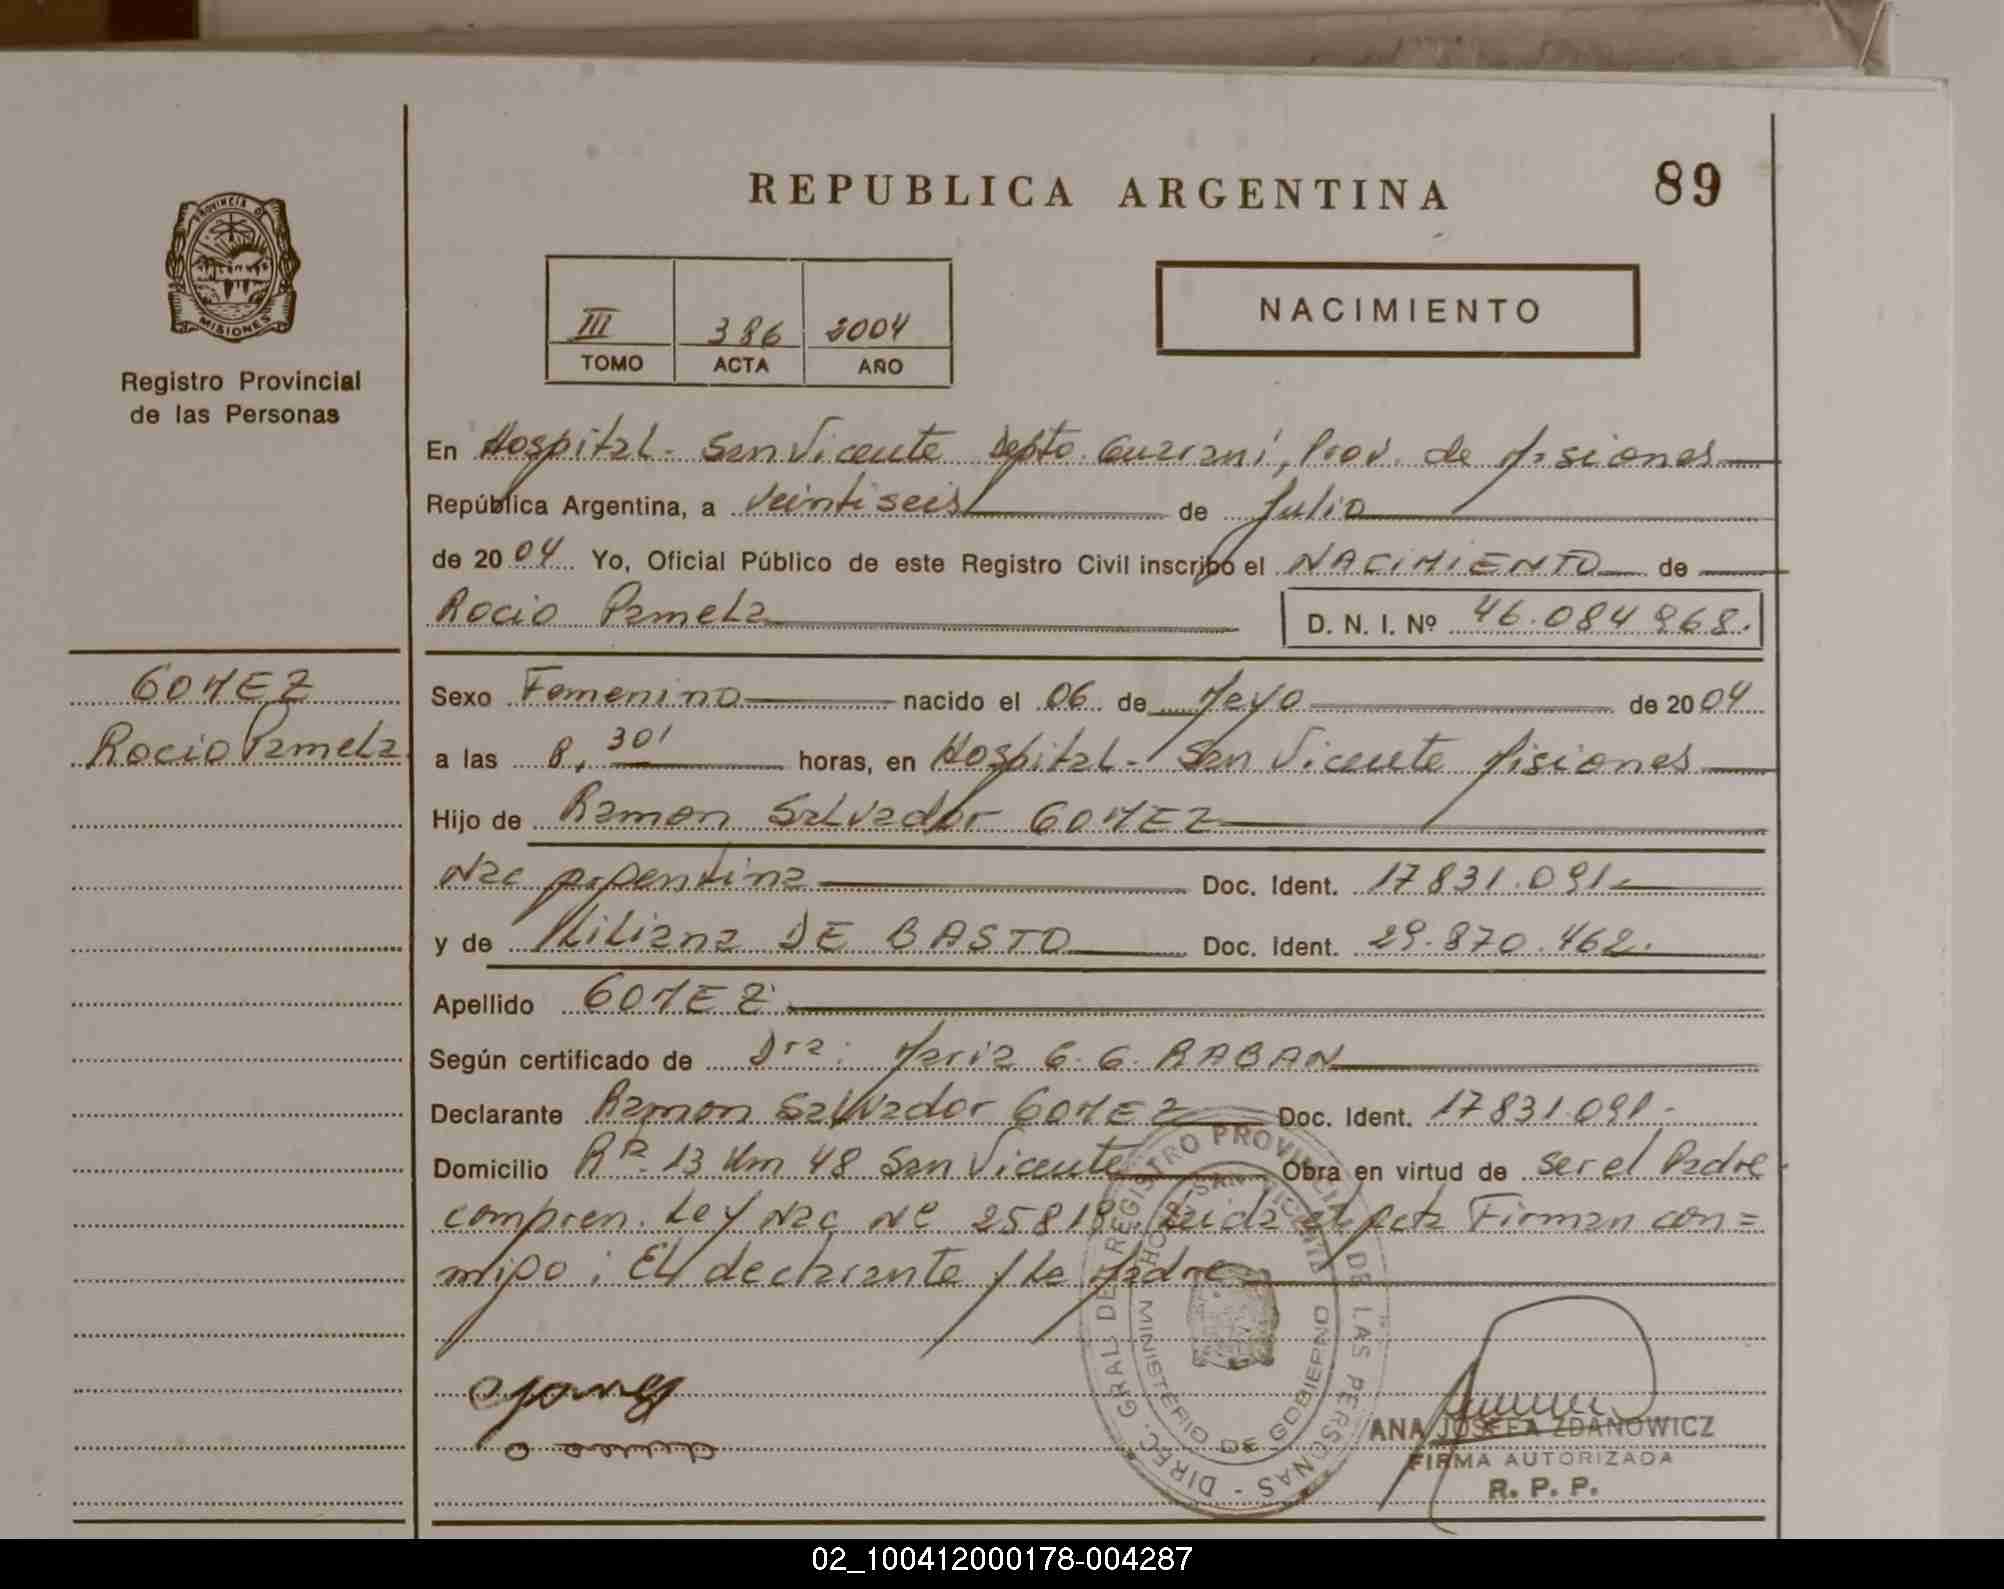 REPUBLICA ARGENTINA
89
PROVINCIA DE
MISIONES
Registro Provincial
de las Personas
III 386 2004
TOMO ACTA AÑO
NACIMIENTO
En Hospital - San Vicente Depto. Guarani, Prov. de Misiones
República Argentina, a veintiseis de Julio
de 2004 Yo, Oficial Público de este Registro Civil inscribo el NACIMIENTO de
Rocio Pamela D. N. I. Nº 46.084 968.
GOMEZ
Rocio Pamela
Sexo Femenino nacido el 06 de Mayo de 2004
a las 8, 30' horas, en Hospital - San Vicente Misiones
Hijo de Ramon Salvador GOMEZ
Nac Argentina Doc. Ident. 17831.091
y de Liliana DE BASTO Doc. Ident. 29.870.462.
Apellido GOMEZ
Según certificado de Dra: Maria G. G. RABAN
Declarante Ramon Salvador GOMEZ Doc. Ident. 17831.091-
Domicilio Rta. 13 Km 48 San Vicente Obra en virtud de ser el Padre
compren. Ley Nac Nº 25818. Leida el Acta Firman con=
migo: El declarante y la Madre
DIREC. GRAL DE REGISTRO PROVINCIAL DE LAS PERSONAS -
MINISTERIO DE GOBIERNO
ANA JOSEFA ZDANOWICZ
FIRMA AUTORIZADA
R. P. P.
02_100412000178-004287